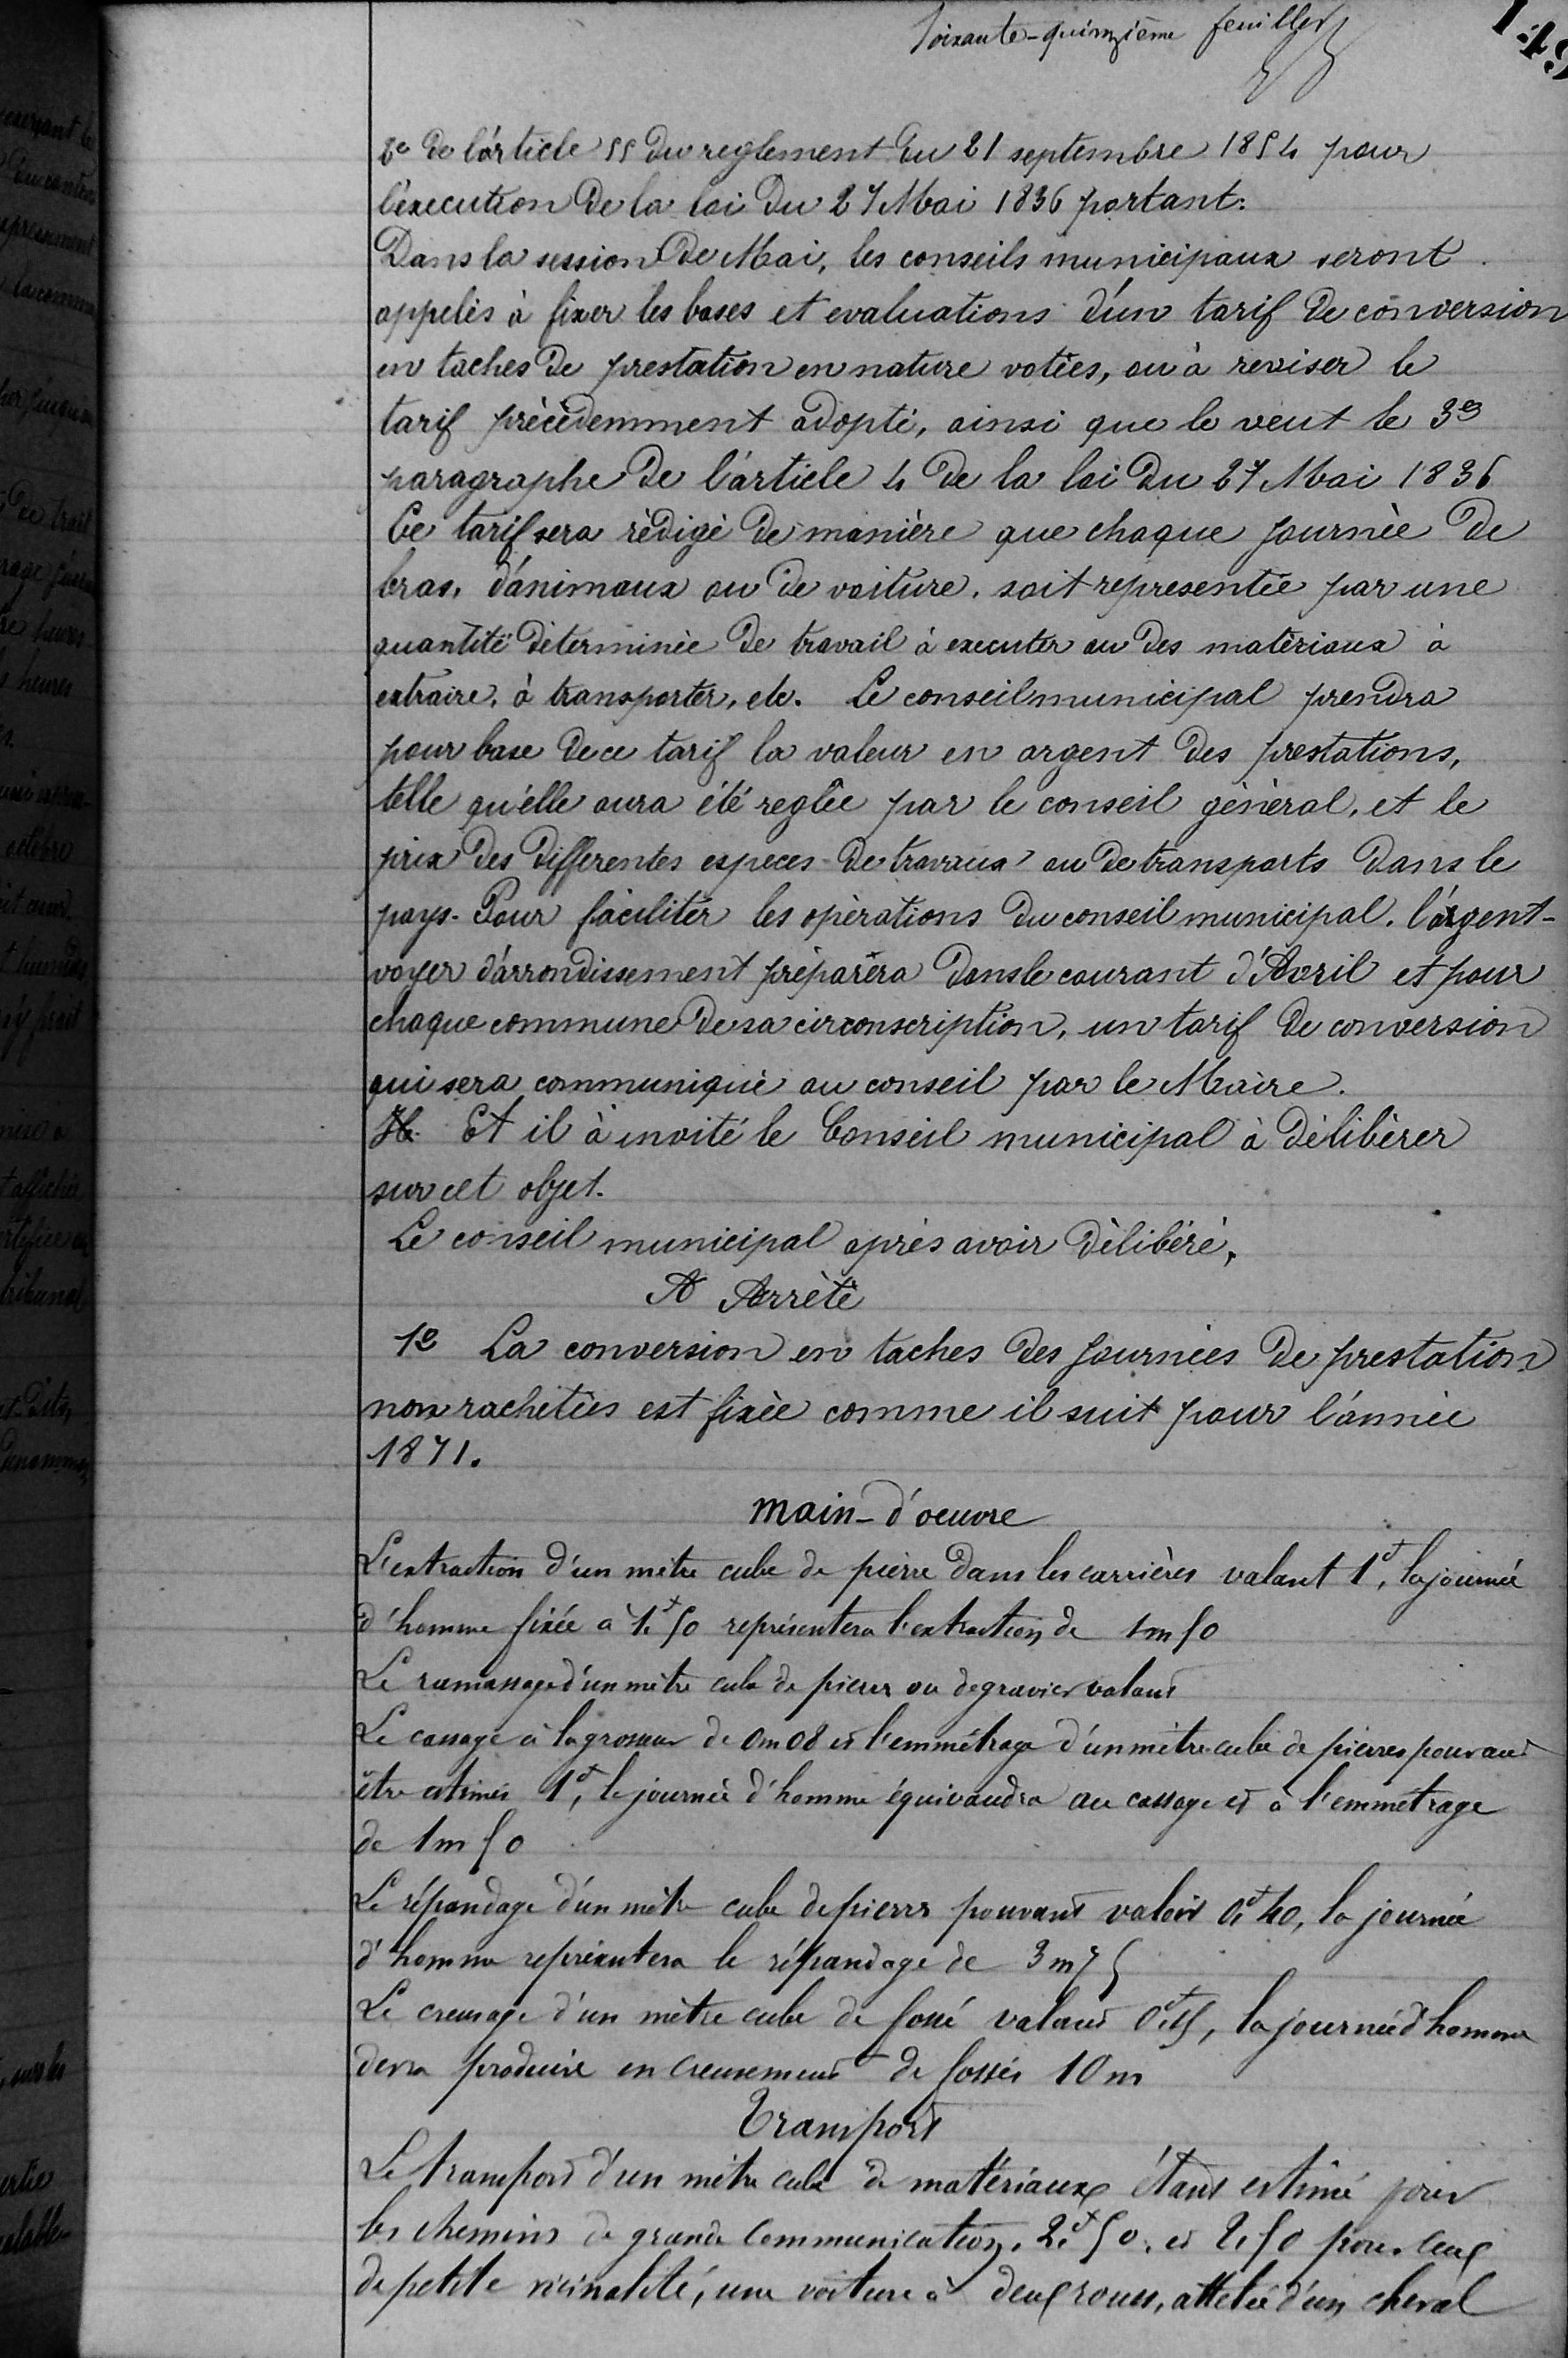 Soixante-quinzième feuillet
149
2e de l'article 55 du reglement du 21 septembre 1854 pour
l'execution de la loi du 27 Mai 1836 portant:
Dans la session de Mai, les conseils municipaux seront
appelés à fixer les bases et evaluations d'un tarif de conversion
en taches de prestation en nature votées, ou à reviser le
tarif précédemment adopté, ainsi que le veut le 3e
paragraphe de l'article 4 de la loi du 27 Mai 1836
Ce tarif sera rédigé de manière que chaque journée de
bras, d'animaux ou de voiture, soit representée par une
quantité déterminée de travail à executer ou des matériaux à
extraire, à transporter, etc. Le conseil municipal prendra
pour base de ce tarif la valeur en argent des prestations,
telle qu'elle aura été reglée par le conseil général, et le
prix des differentes especes de travaux ou de transports dans le
pays. Pour faciliter les opérations du conseil municipal, l'argent-
voyer d'arrondissement préparera dans le courant d'Avril et pour
chaque commune de sa circonscription, un tarif de conversion
qui sera communiqué au conseil par le Maire.
Et il à invité le Conseil municipal à délibérer
sur cet objet.
Le conseil municipal après avoir délibéré,
A Arrèté
1o La conversion en taches des journées de prestation
non rachetées est fixée comme il suit pour l'année
1871.
main-d'oeuvre
L'extraction d'un mètre cube de pierre dans les carrières valant 1f, la journée
d'homme fixée à 1f50 représentera l'extraction de 1m50
Le ramassage d'un mètre cube de pierres ou de gravier valant
Le cassage à la grosseur de 0m08 et l'emmétrage d'un mètre cube de pierres pouvant
être estimés 1f, la journée d'homme équivaudra au cassage et à l'emmétrage
de 1m50
Le répandage d'un mètre cube de pierres pouvant valoir 0f40, la journée
d'homme représentera le répandage de 3m75
Le creusage d'un mètre cube de fossé valant 0f15, la journée d'homme
devra produire en creusement de fossés 10m
Transport
Le transport d'un mètre cube de matériaux étant estimé pour
les chemins de grande communication, 2f50, et 2f50 pour ceux
de petite vicinalité, une voiture à deux roues, attelée d'un cheval